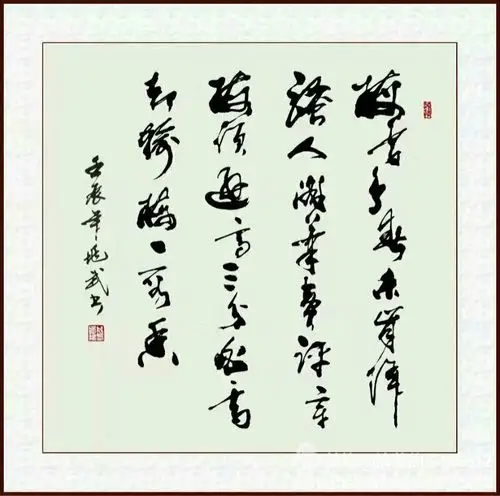 梅雪争春未肯降
骚人搁笔费评章
梅须逊雪三分白雪
却输梅一段香
壬辰年武书